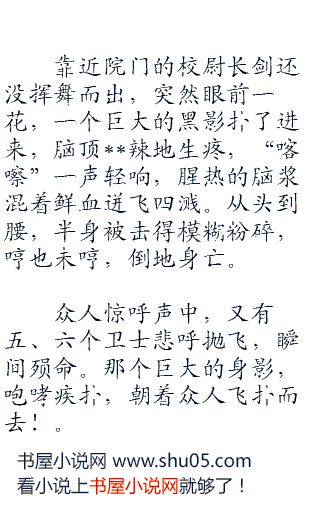 靠近院门的校尉长剑还
没挥舞而出，突然眼前一
花，一个巨大的黑影扑了进
来，脑顶**辣地生疼，“喀
嚓”一声轻响，腥热的脑浆
混着鲜血迸飞四溅。从头到
腰，半身被击得模糊粉碎，
哼也未哼，倒地身亡。
众人惊呼声中，又有
五、六个卫士悲呼抛飞，瞬
间殒命。那个巨大的身影，
咆哮疾扑，朝着众人飞扑而
去！。
书屋小说网 www.shu05.com
看小说上书屋小说网就够了！